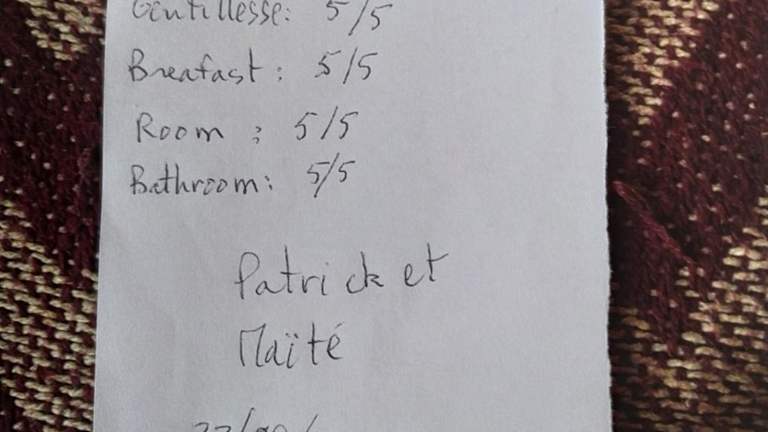 Gentillesse: 5/5
Breafast: 5/5
Room: 5/5
Bathroom: 5/5
Patrick et
Maïté